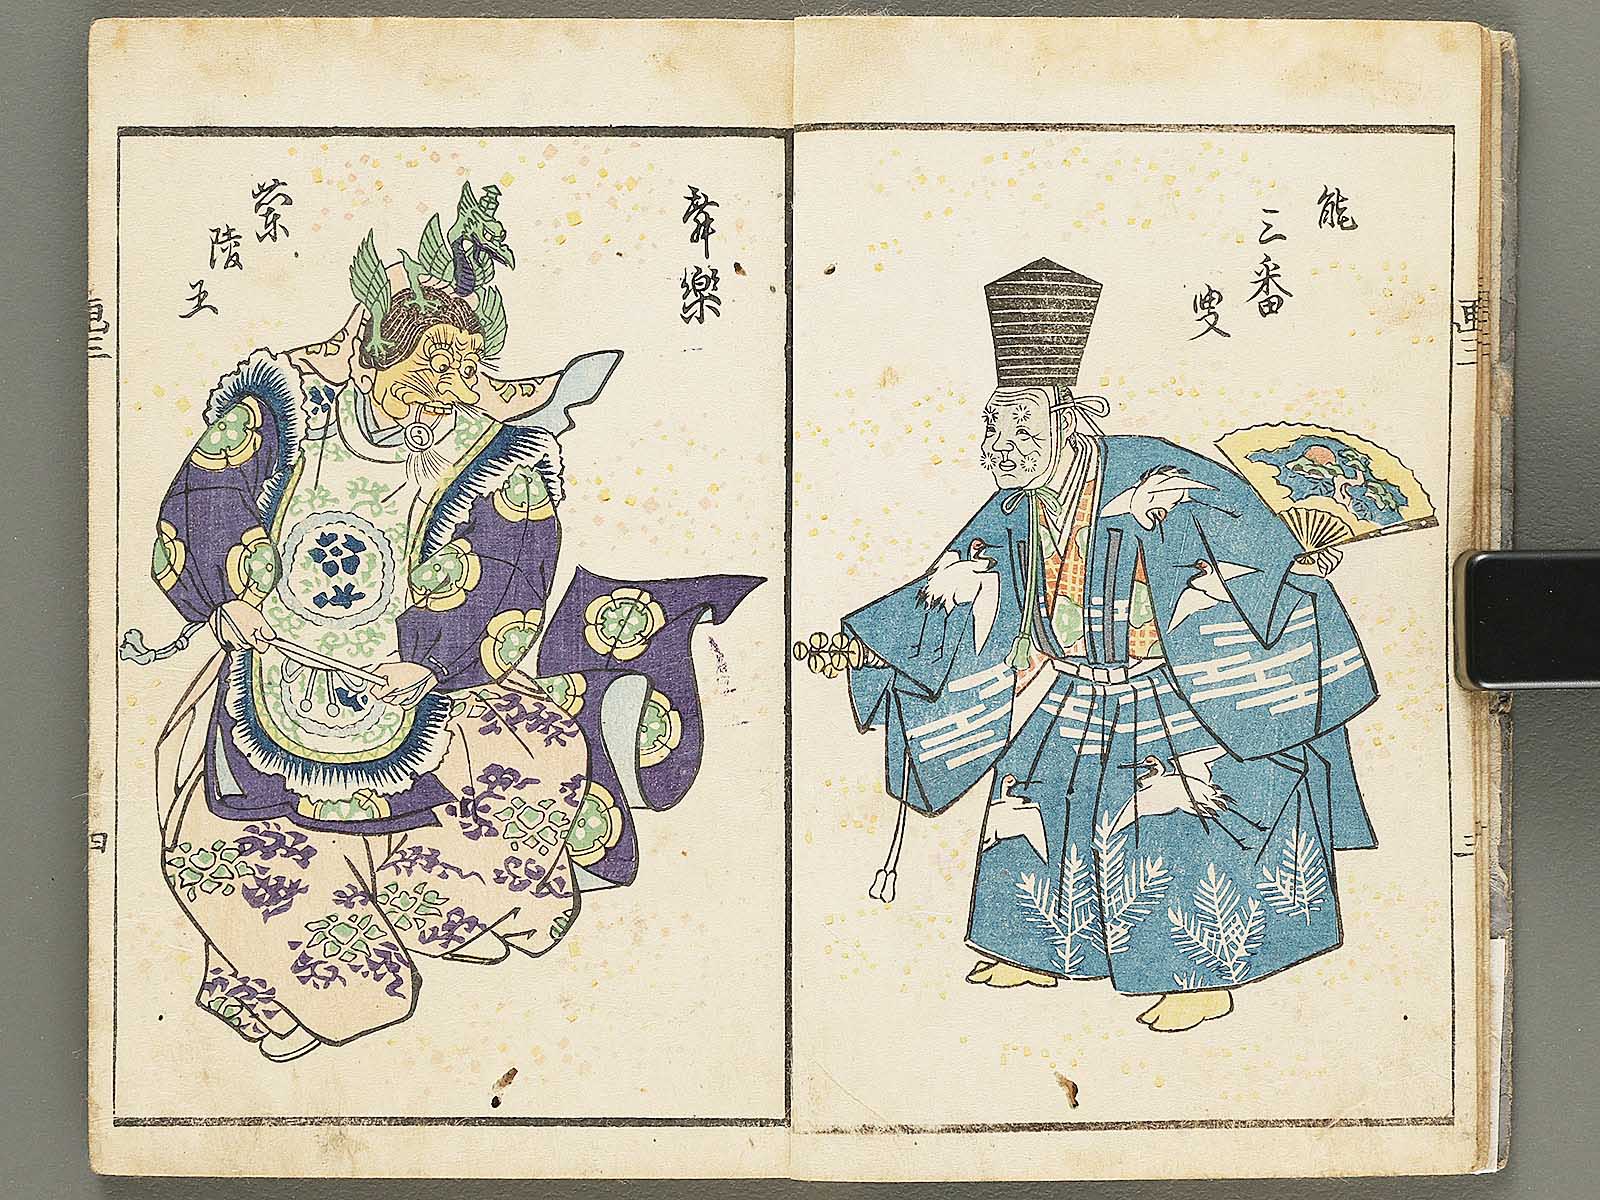 能
三番
叟
舞樂
蘭
陵
王
三
四